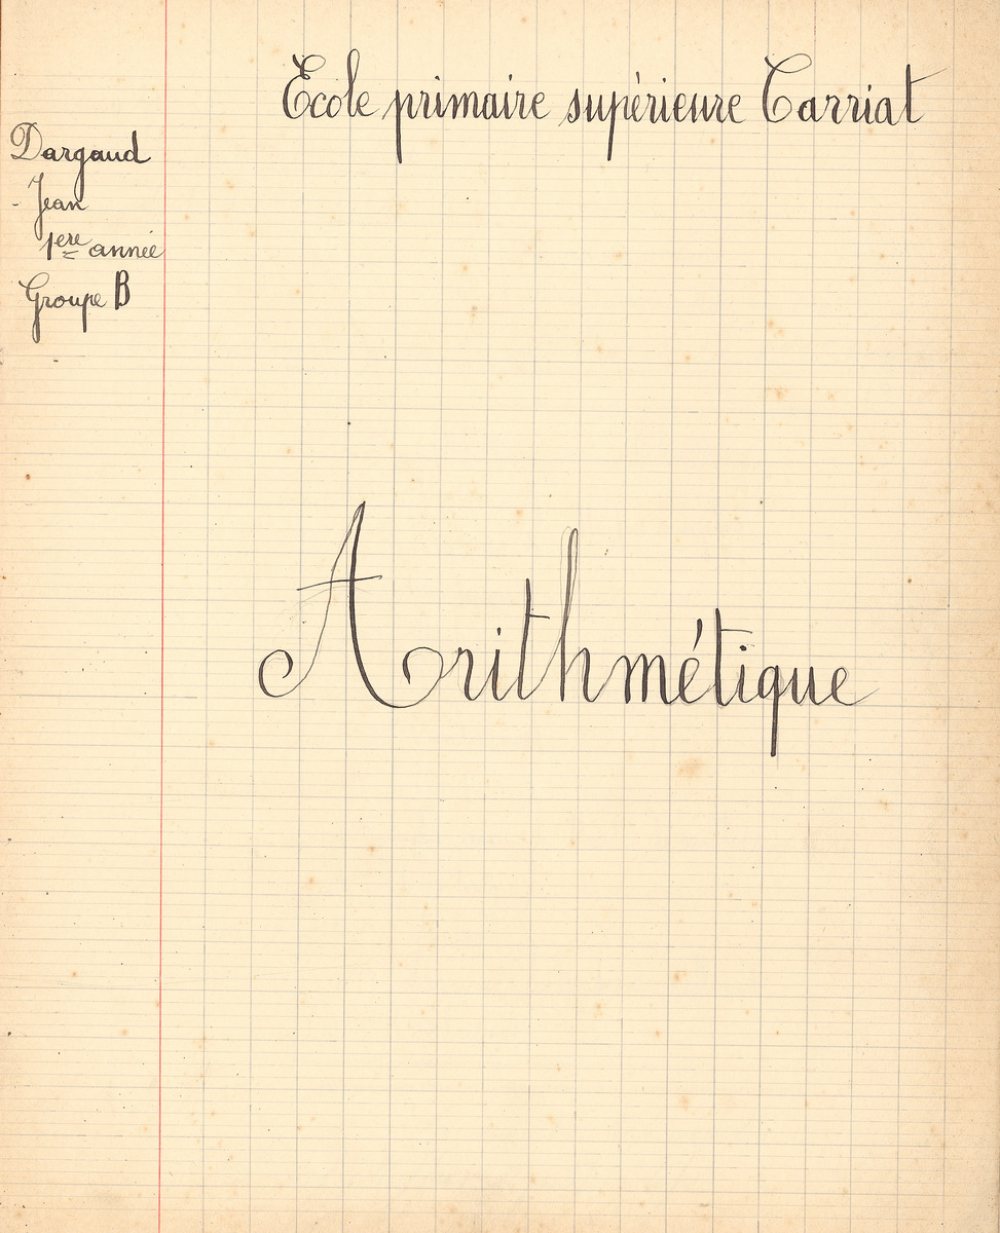 Ecole primaire supérieure Carriat
Dargaud
- Jean
1ère année
Groupe B
Arithmétique